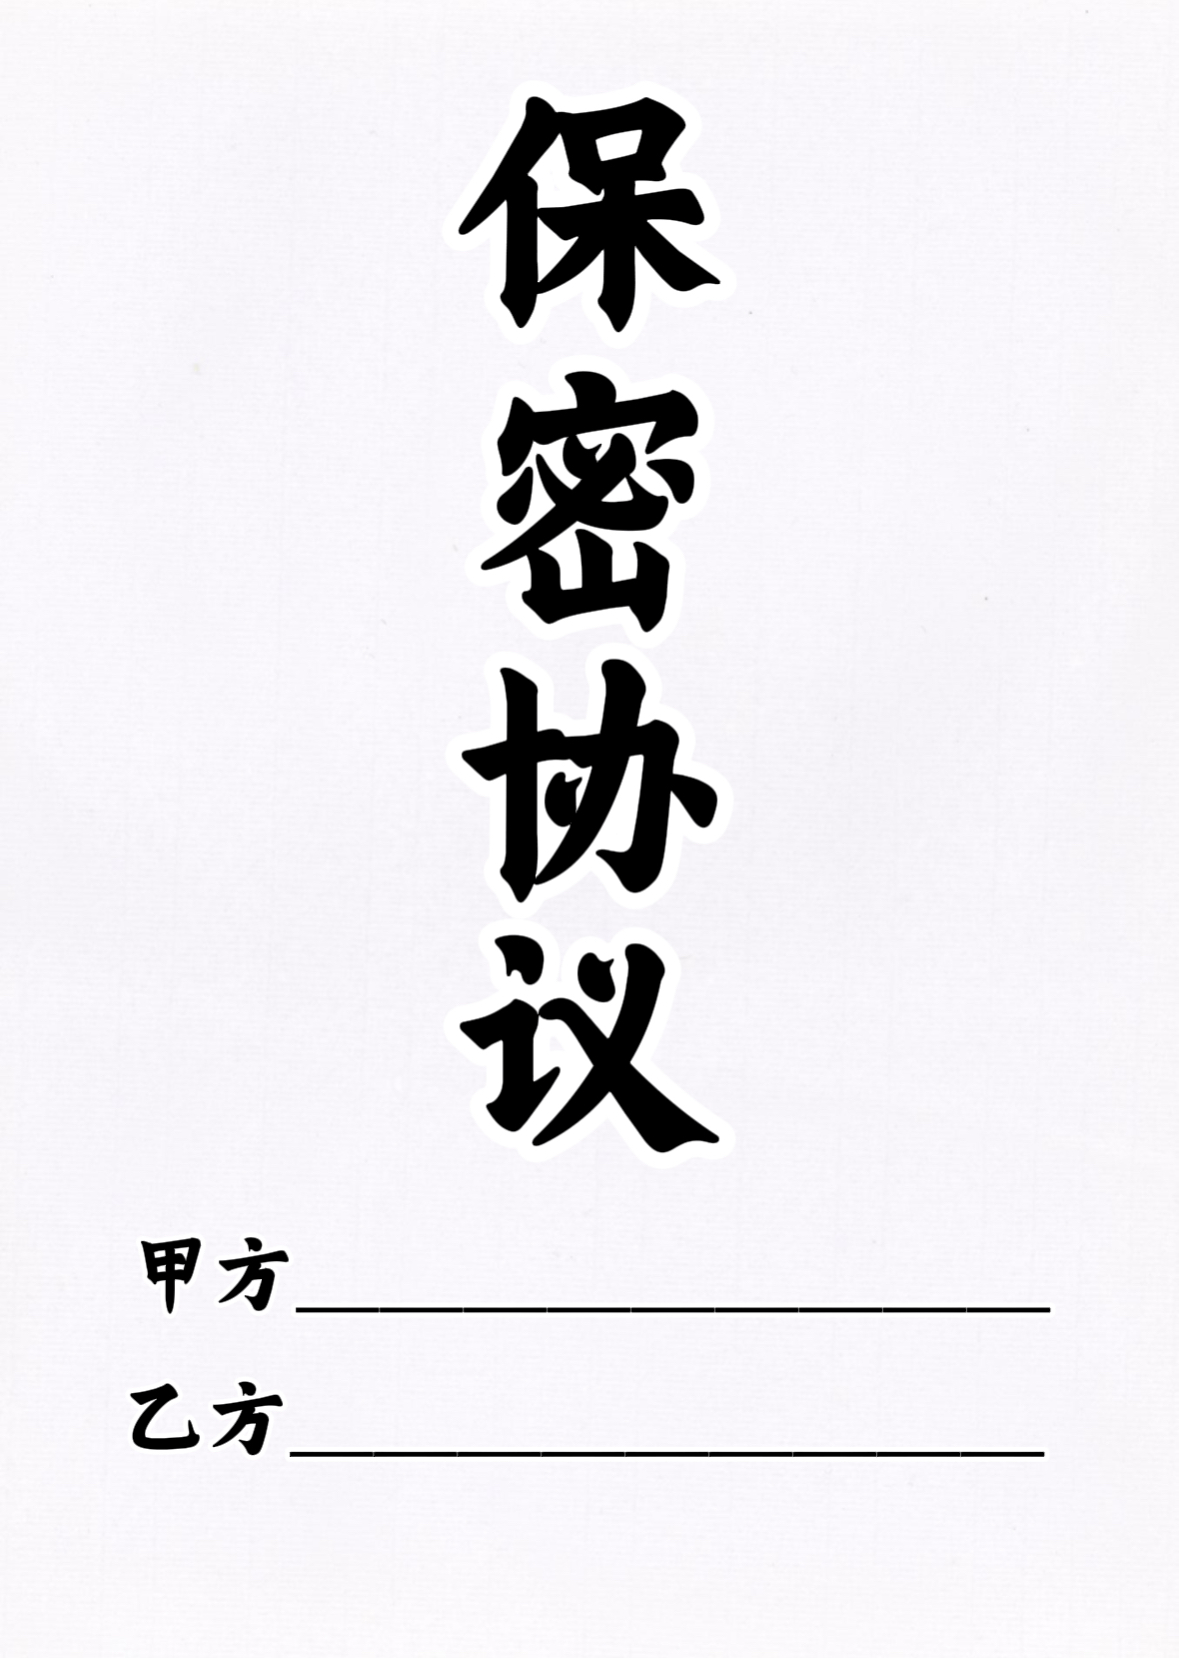 保密协议
甲方__________________
乙方__________________